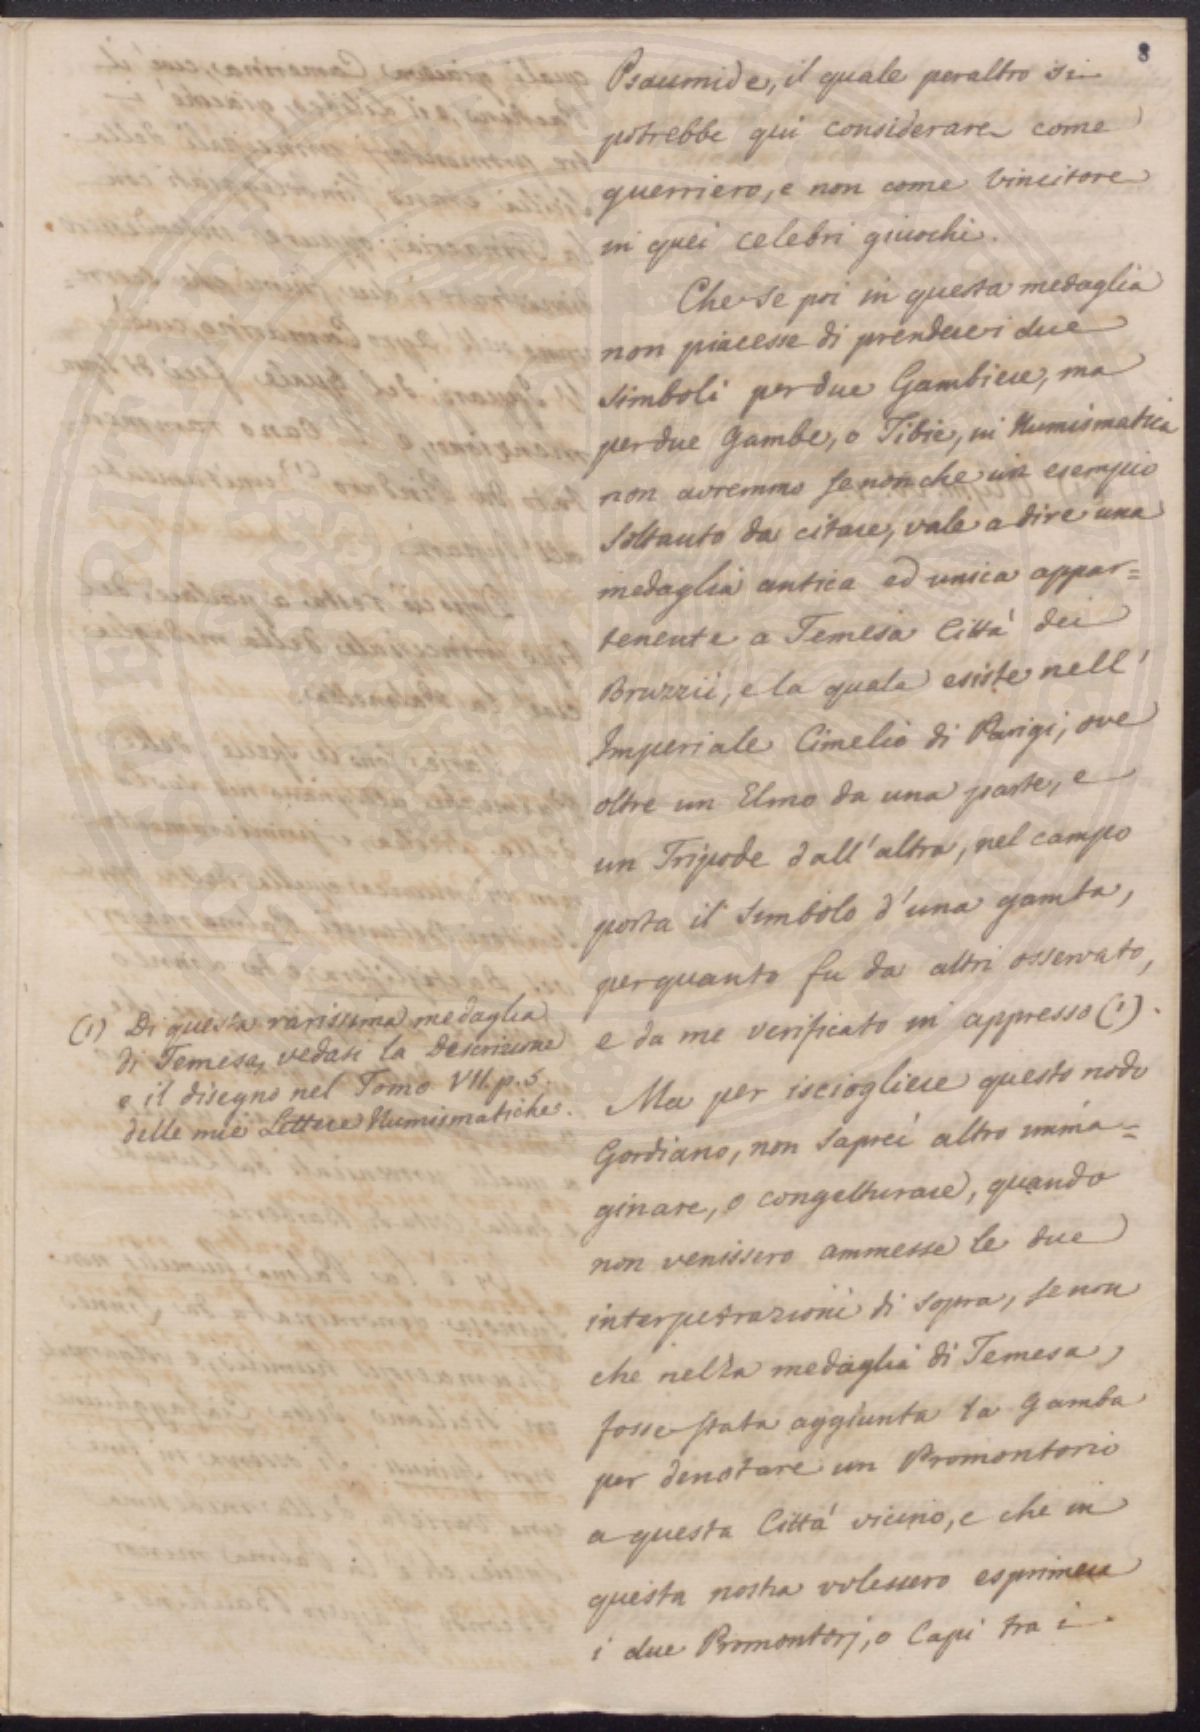 8
Psaumide, il quale peraltro si
potrebbe quì considerare come
guerriero, e non come Vincitore
in quei celebri giuochi.
Che se poi in questa medaglia
non piacesse di prendere i due
simboli per due Gambiere, ma
per due Gambe, o Tibie, in Numismatica
non avremmo senonche un esempio
soltanto da citare, vale a dire una
medaglia antica ed unica appar=
tenente a Temesa Città dei
Bruzzii, e la quale esiste nell'
Imperiale Cimelio di Parigi, ove
oltre un Elmo da una parte, e
un Tripode dall'altra, nel campo
porta il simbolo d'una gamba,
perquanto fu da altri osservato,
e da me verificato in appresso (1).
Ma per isciogliere questo nodo
Gordiano, non saprei altro imma=
ginare, o congetturare, quando
non venissero ammesse le due
interpetrazioni di sopra, senon
che nella medaglia di Temesa,
fosse stata aggiunta la Gamba
per denotare un Promontorio
a questa Città vicino, e che in
questa nostra volessero esprimere
i due Promontorj, o Capi tra i
(1) Di questa rarissima medaglia
di Temesa, vedasi la Descrizione
e il disegno nel Tomo VII. p. 5.
delle mie Lettere Numismatiche.